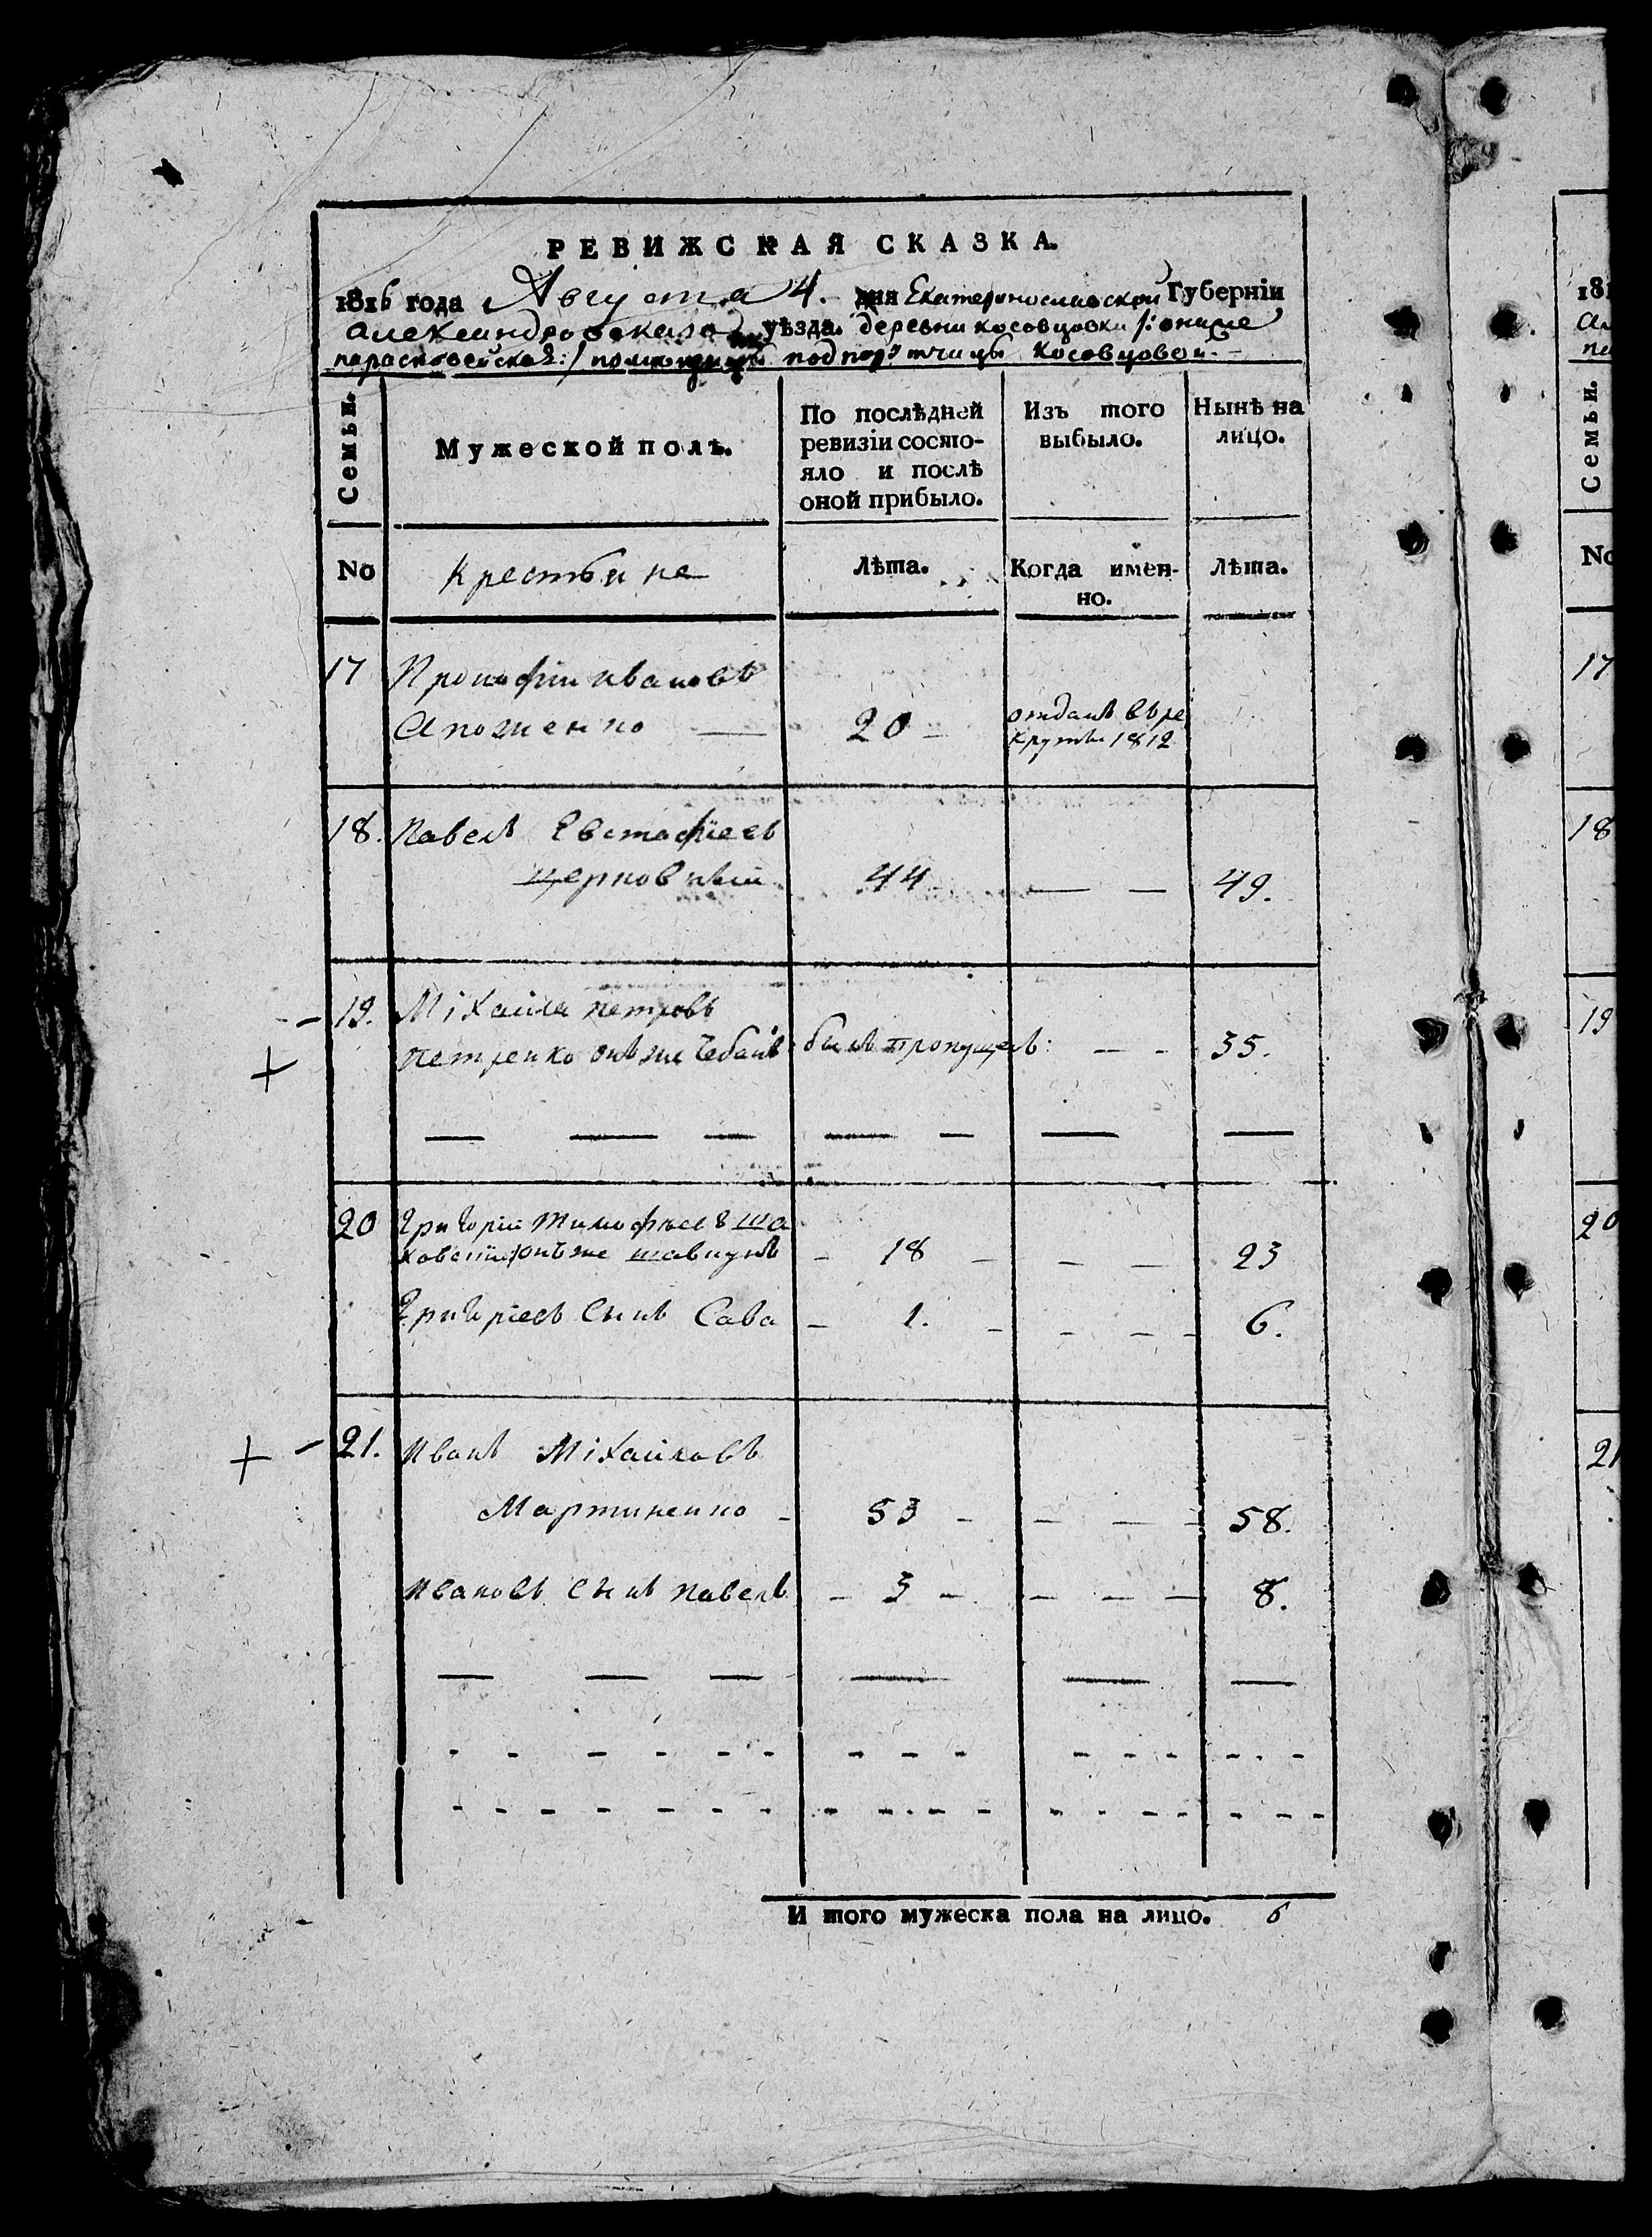 РЕВИЖСКАЯ СКАЗКА.
1816 года Августа 4. дня Екатеринославской Губернїи
александровскаго уѣзда. деревни косовцовки /: онаже
парасковейская :/ помещицы подпорутчицы Косовцовой.
Семьи.
Мужеской полъ.
По послѣдней ревизїи состояло и послѣ оной прибыло.
Изъ того выбыло.
Нынѣ на лицо.
No
Крестьяне
Лѣта.
Когда именно.
Лѣта.
17 Прокофїи ивановъ
20 отданъ въ рекруты 1812
18. Павелъ Евстафїевъ
44 — — 49.
19. Мїхайла петровъ
петренко онъже Чебанъ былъ пропущенъ: — - 35.
20 Григорїй тимофѣевъ
онъже - 18 - - - 23
Григорїевъ Сынъ Сава - 1. - - - 6.
21. иванъ Мїхайловъ
Мартиненко - 53 - - - - 58.
ивановъ Сынъ павелъ - 3 - - - - 8.
И того мужеска пола на лицо. 6
181
No
17
18
19
20
21